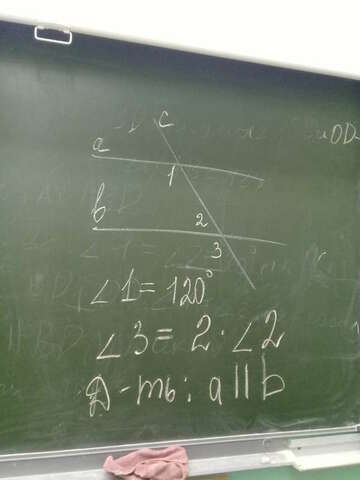 c
a
1
b
2
3
∠1 = 120°
∠3 = 2 · ∠2
Д-ть: a || b